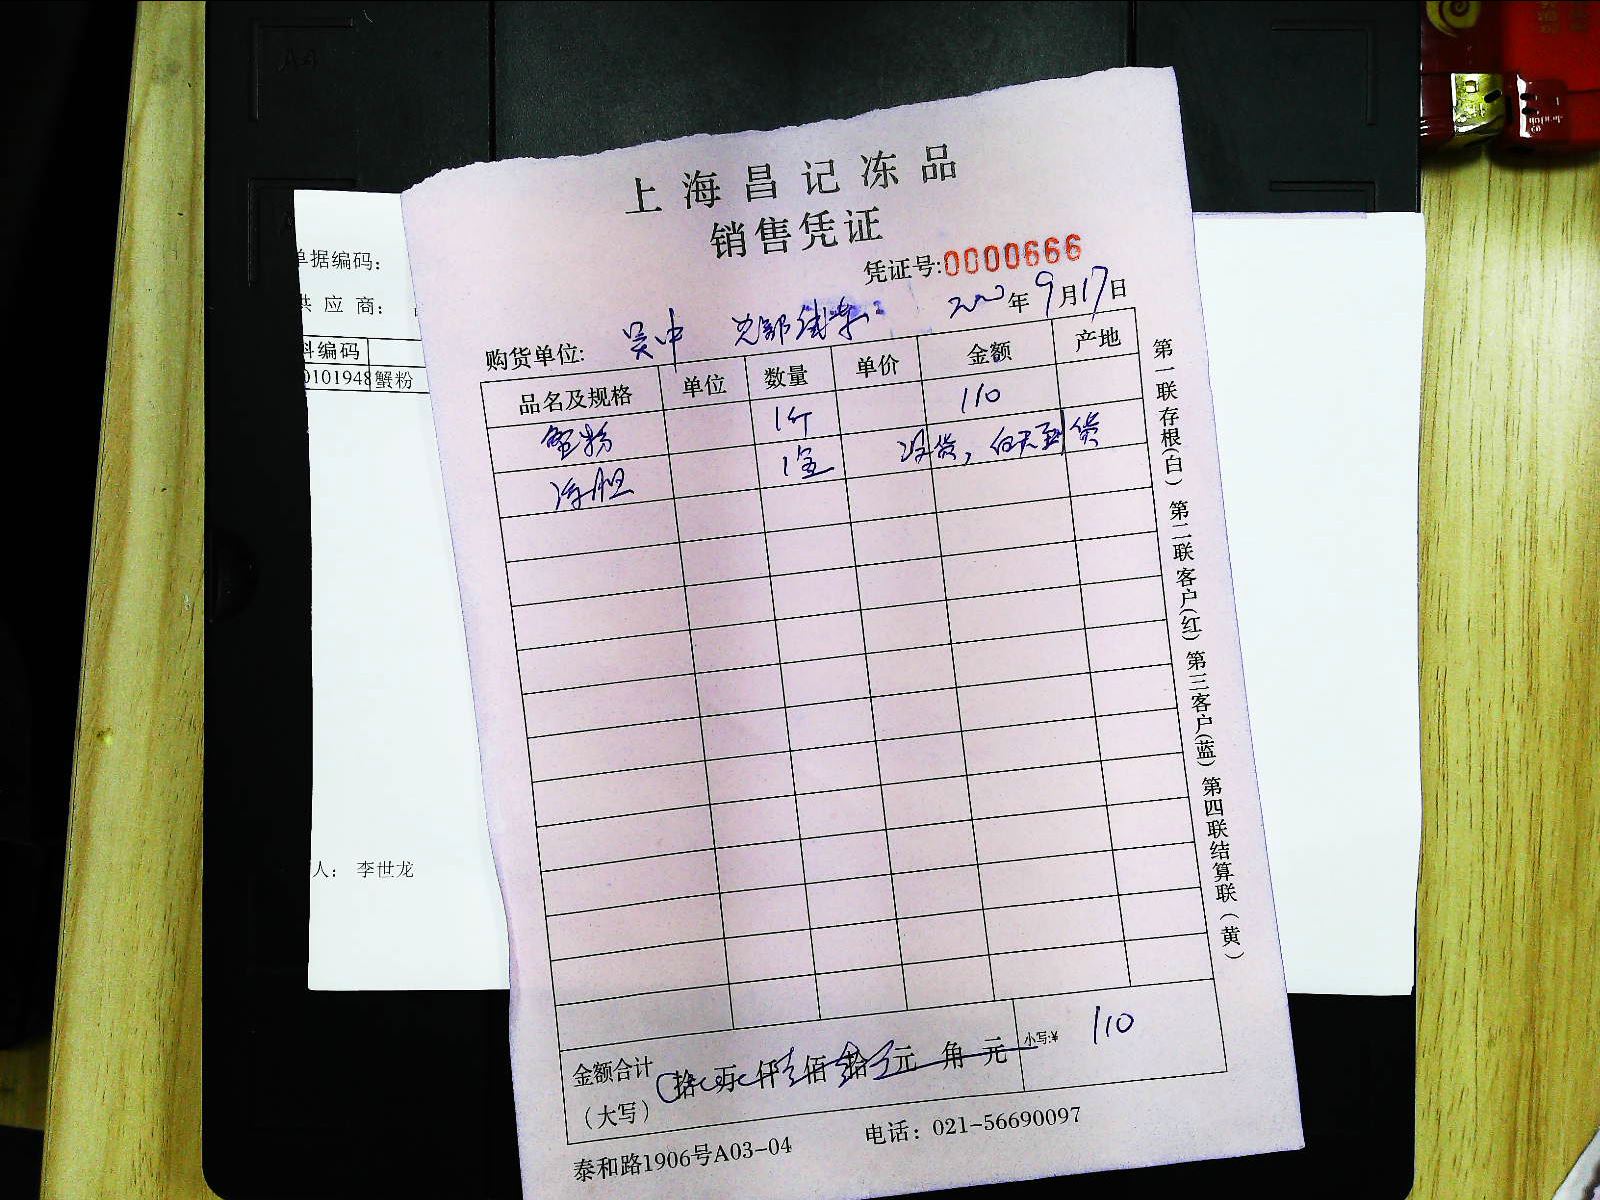 上海昌记冻品
销售凭证
凭证号:0000666
年9月17日
购货单位: 吴中
品名及规格 单位 数量 单价 金额 产地
蟹粉 1斤 110
1盒 没货, 白天到货
金额合计 拾 万 仟 佰 拾 元 角 元 小写:¥ 110
（大写）
泰和路1906号A03-04 电话：021-56690097
第一联存根(白) 第二联客户(红) 第三客户(蓝) 第四联结算联(黄)
单据编码：
供 应 商：
料编码
0101948 蟹粉
人： 李世龙